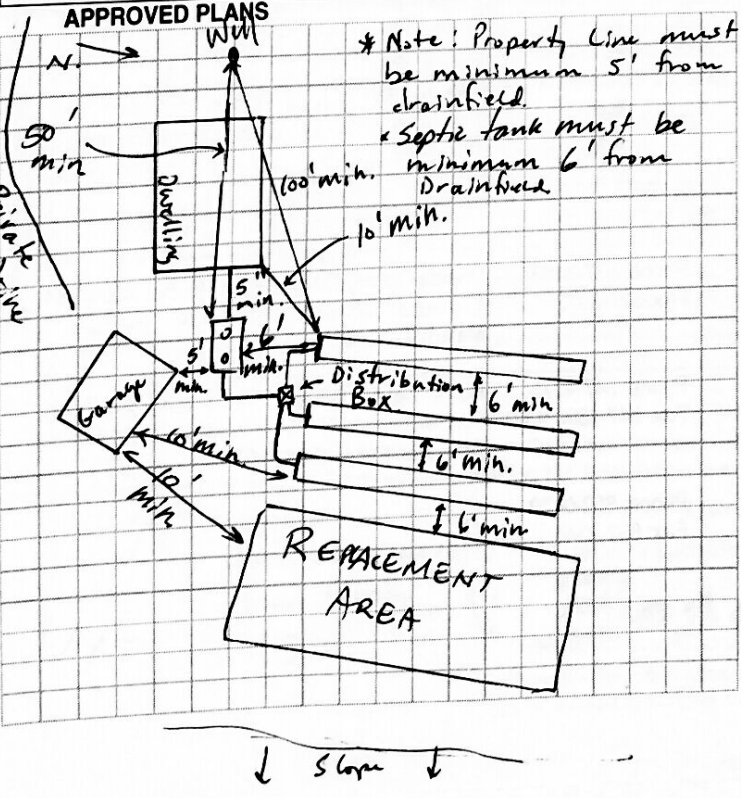 APPROVED PLANS
Well
N.
* Note: Property Line must
be minimum 5' from
drainfield.
* Septic tank must be
minimum 6' from
Drainfield
50'
min
Dwelling
100' min.
10' min.
Private
5'
min.
6'
min.
5'
min.
Garage
Distribution
Box
6' min
10' min.
6' min.
10'
min
6' min
REPLACEMENT
AREA
Slope